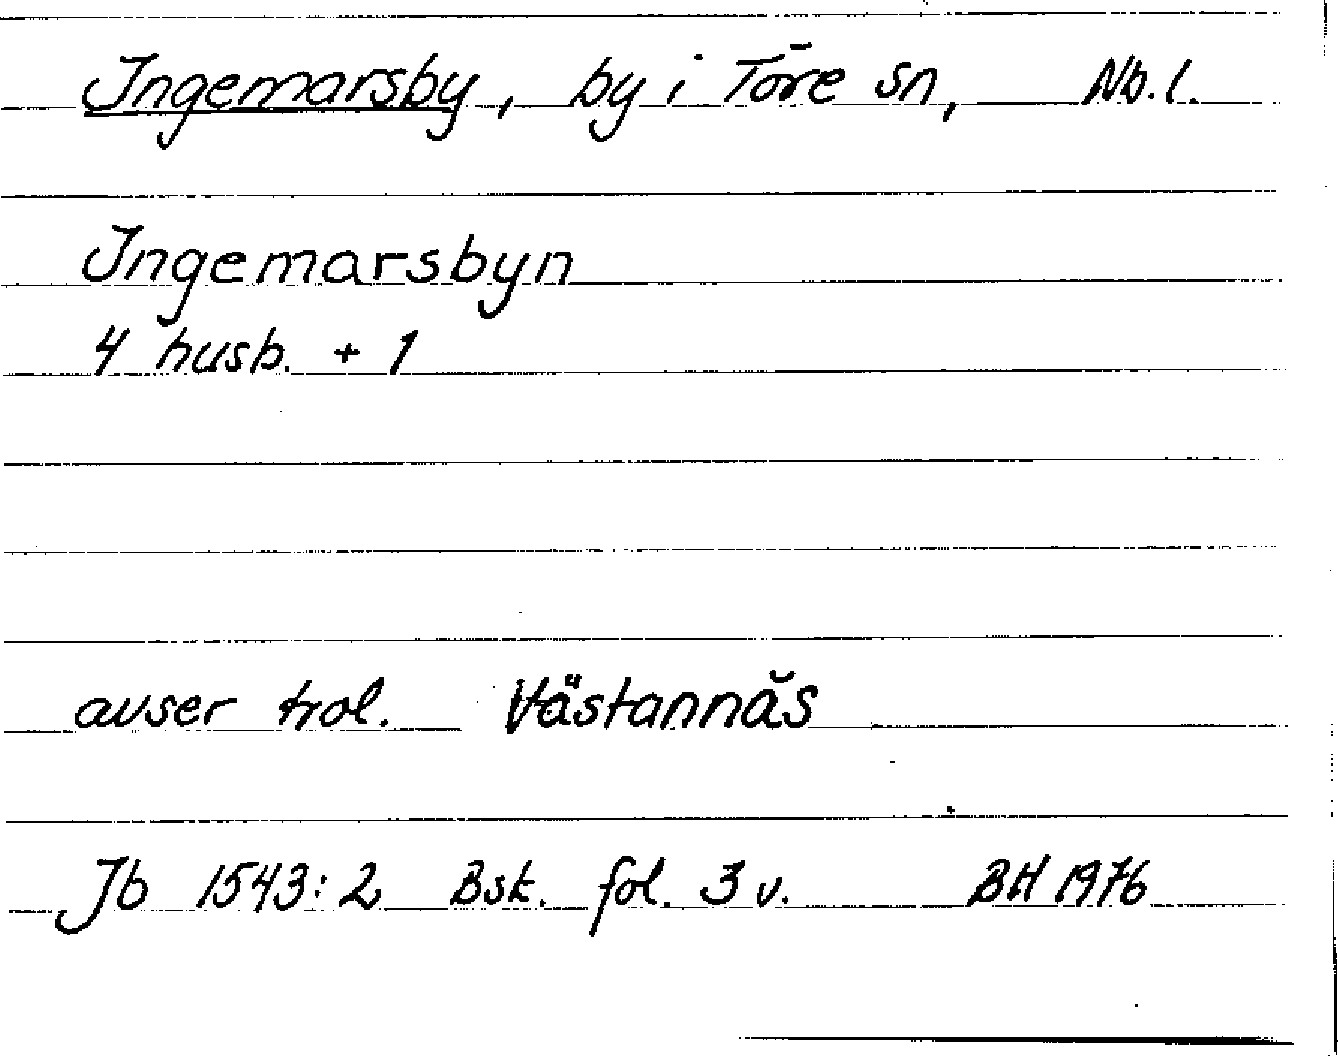 Ingemarsby, by i Töre sn, Nb.l.
Ingemarsbyn
4 husb. + 1
avser trol. Västannäs
Jb 1543:2 Bsk. fol. 3 v. BH 1976